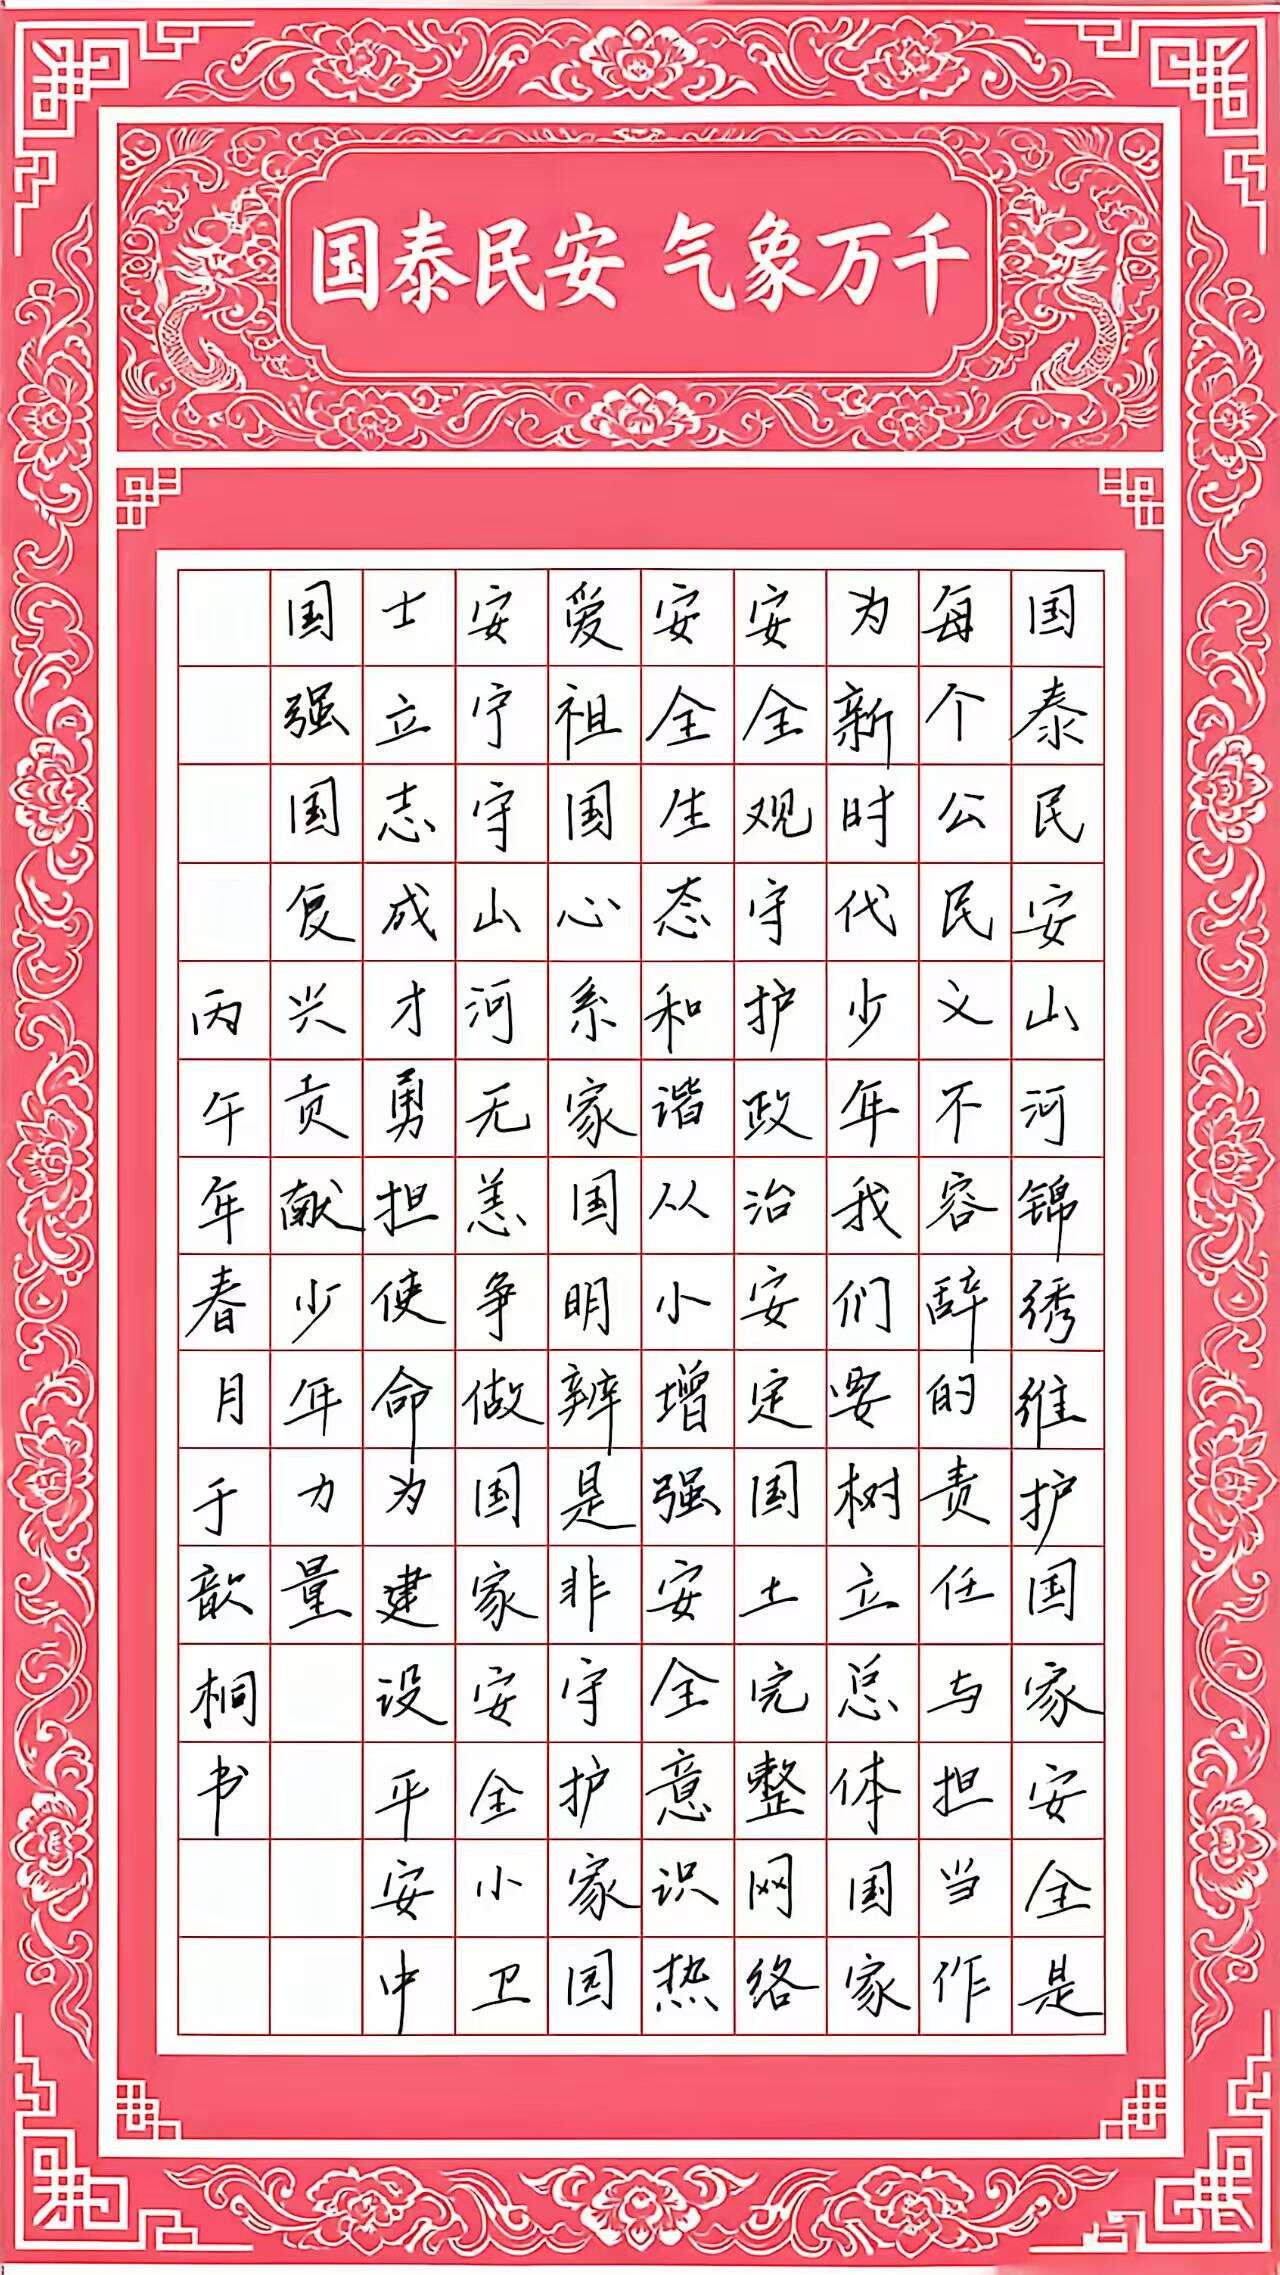 国泰民安 气象万千
国泰民安山河锦绣维护国家安全是
每个公民义不容辞的责任与担当作
为新时代少年我们要树立总体国家
安全观守护政治安定国土完整网络
安全生态和谐从小增强安全意识热
爱祖国心系家国明辨是非守护家国
安宁守山河无恙争做国家安全小卫
士立志成才勇担使命为建设平安中
国强国复兴贡献少年力量
丙午年春月于歆桐书